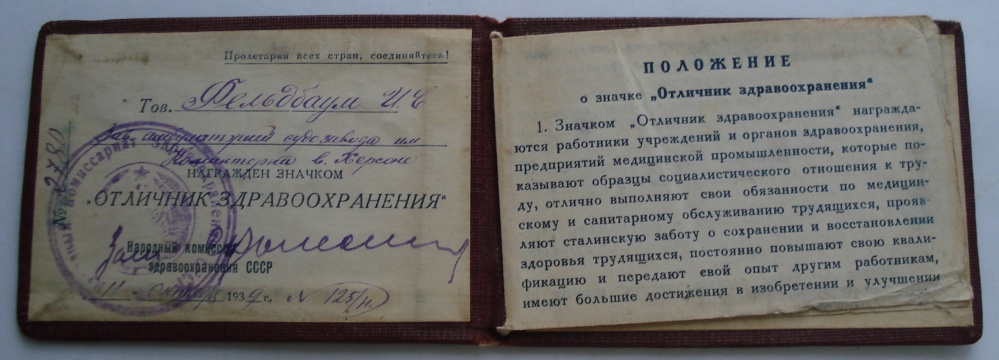 Пролетарии всех стран, соединяйтесь!
Тов. Фельдбаум И.С
Зав. амбулаторией судозавода им
Коминтерна в. Херсоне
НАГРАЖДЕН ЗНАЧКОМ
„ОТЛИЧНИК ЗДРАВООХРАНЕНИЯ“
Зам Народный комиссар
здравоохранения СССР
11 1939 г. N 125/н
№ 2380
ПОЛОЖЕНИЕ
о значке „Отличник здравоохранения“
1. Значком „Отличник здравоохранения“ награжда-
ются работники учреждений и органов здравоохранения,
предприятий медицинской промышленности, которые по-
казывают образцы социалистического отношения к тру-
ду, отлично выполняют свои обязанности по медицин-
скому и санитарному обслуживанию трудящихся, прояв-
ляют сталинскую заботу о сохранении и восстановлении
здоровья трудящихся, постоянно повышают свою квали-
фикацию и передают евой опыт другим работникам,
имеют большие достижения в изобретении и улучшении